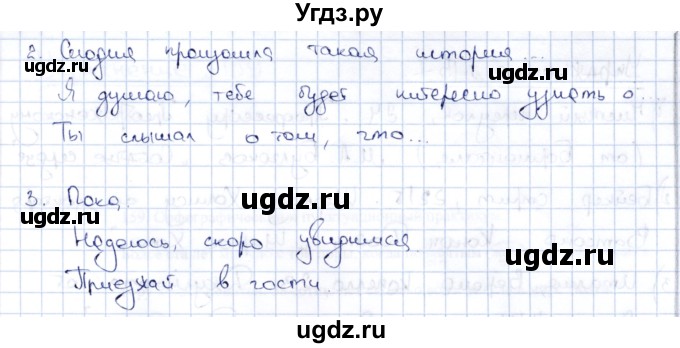 Угдз.ру
2. Сегодня произошла такая история...
ugdz.ru ugdz.ru
Я думаю, тебе будет интересно узнать о...
ugdz.ru
Ты слышал о том, что...
3. Пока.
ugdz.ru
Надеюсь, скоро увидимся.
ugdz.ru ugdz.ru
Приезжай в гости.
ugdz.ru
ugdz.ru